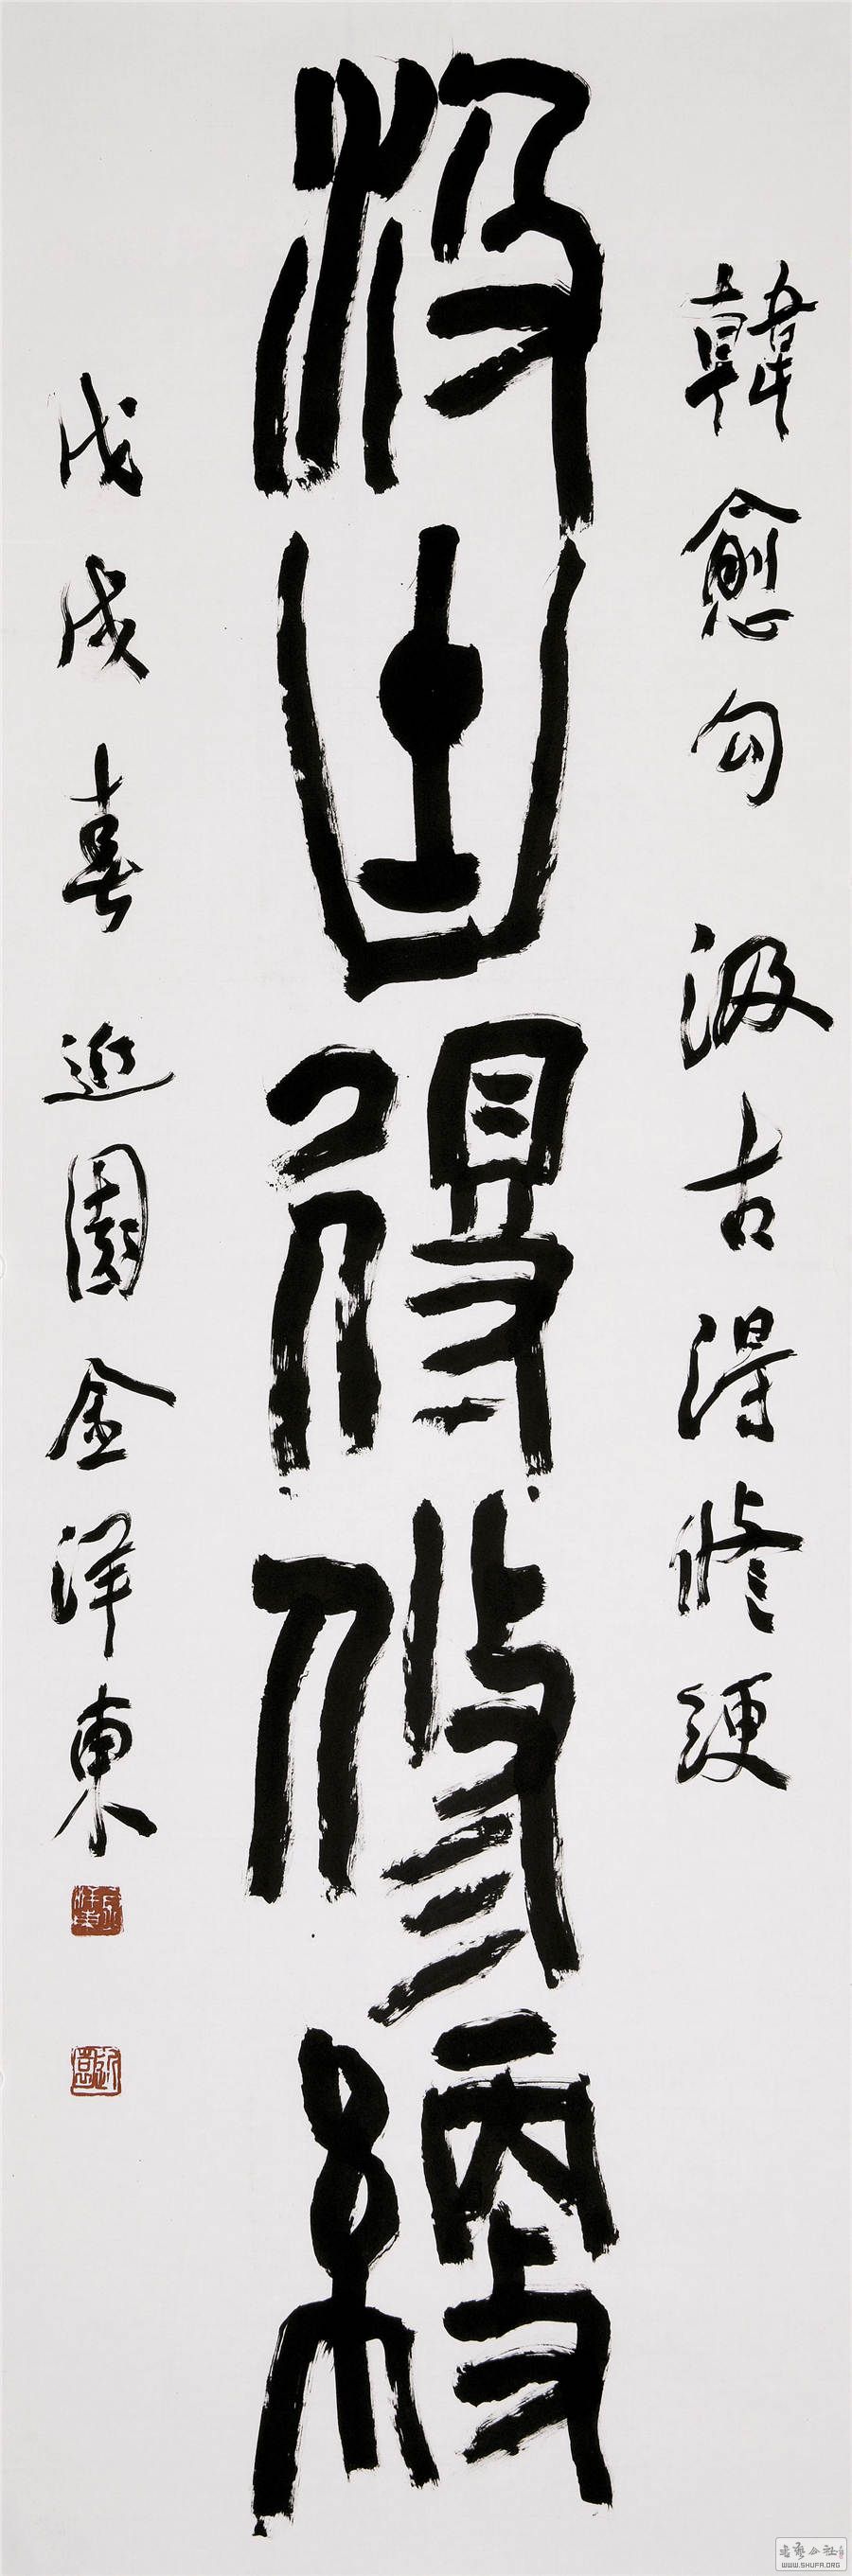 韓愈句 汲古得修綆
汲古得修綆
戊戌春 近園金東
書藝公社
WWW.SHUFA.ORG